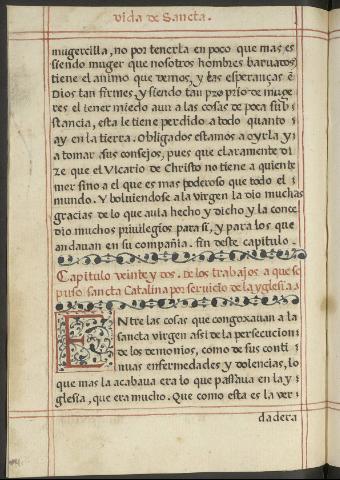 vida de Sancta.
mugercilla, no por tenerla en poco que mas es
siendo muger que nosotros hombres baruados
tiene el animo que vemos, y las esperanças ẽ
Dios tan firmes, y siendo tan proprio de muge
res el tener miedo aun a las cosas de poca sub
stancia, esta le tiene perdido a todo quanto
ay en la tierra. Obligados estamos a oyrla y
a tomar sus consejos, pues que claramente di
ze que el Vicario de Christo no tiene a quien te
mer sino a el que es mas poderoso que todo el
mundo. Y boluiendose a la virgen la dio muchas
gracias de lo que auia hecho y dicho y la conce
dio muchos priuilegios para si, y para los que
andauan en su compañia. fin deste capitulo.
Capitulo veinte y dos. de los trabajos a que se
puso sancta Catalina por seruicio de la yglesia
ENtre las cosas que congoxauan a la
sancta virgen assi de la persecucion
de los demonios, como de sus conti
nuas enfermedades y dolencias, lo
que mas la acabaua era lo que passaua en la y
glesia, que era mucho. Que como esta es la ver
dadera